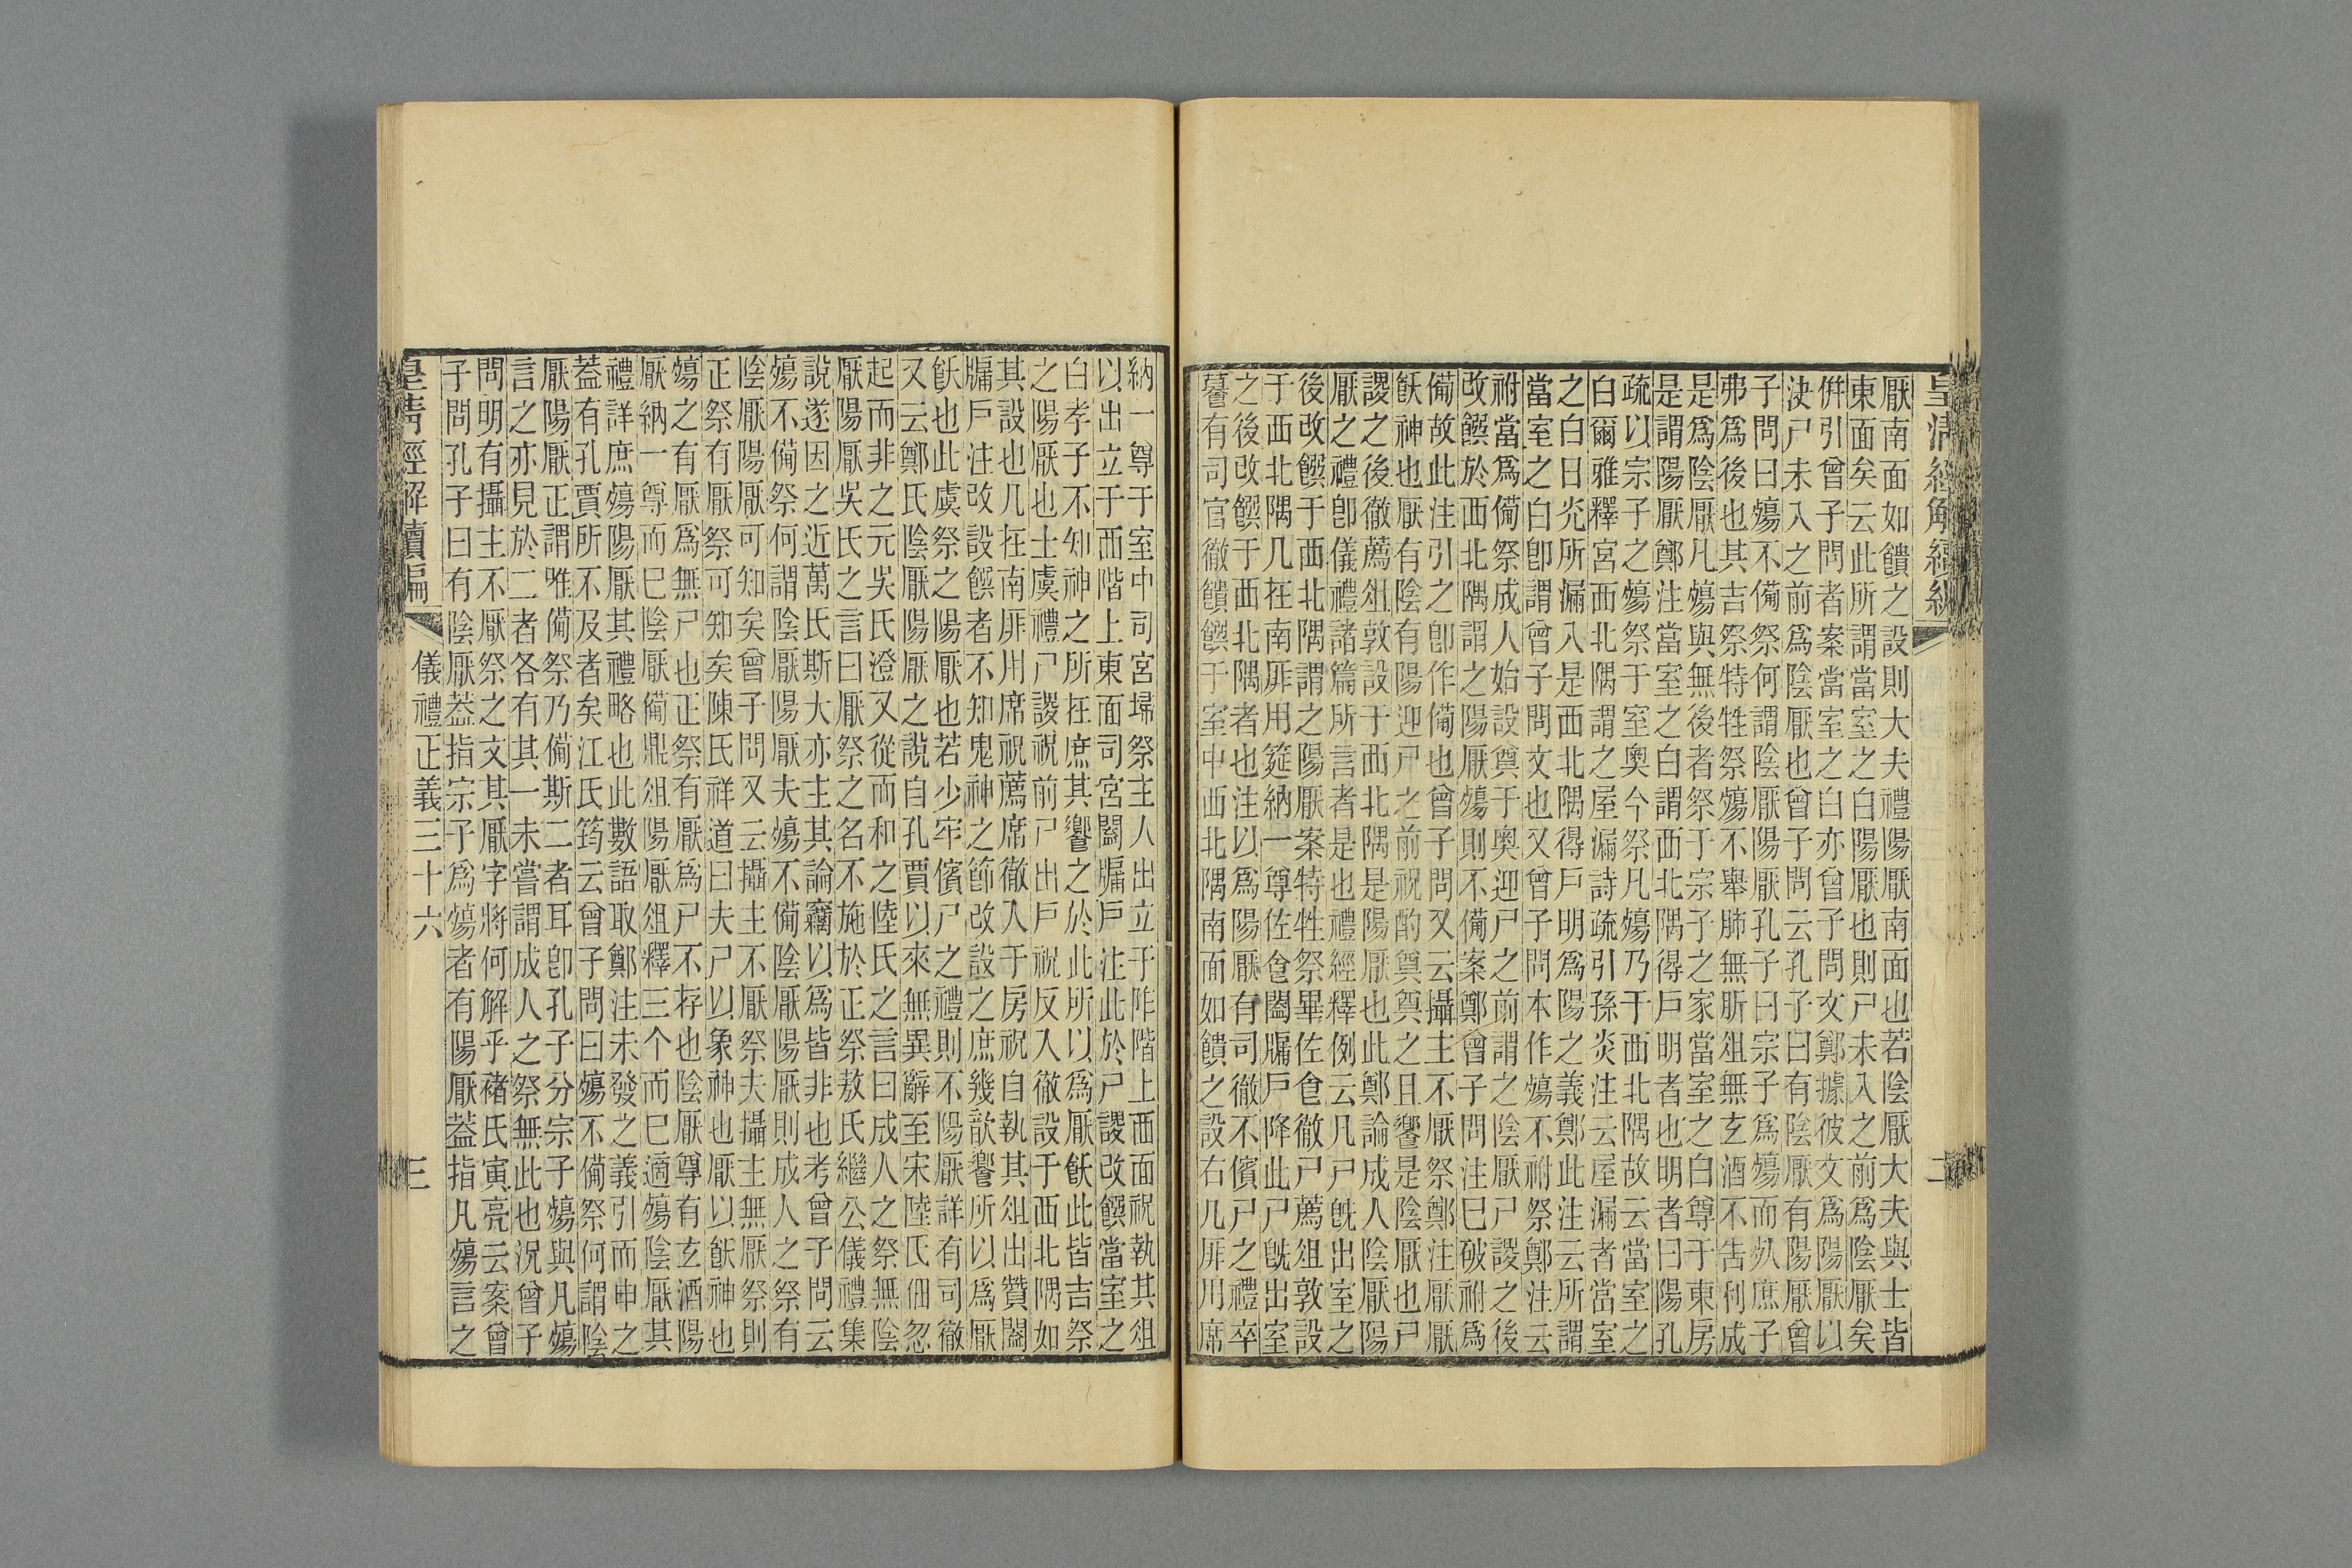 皇清經解續編
二
厭南面如饋之設則大夫禮陽厭南面也若陰厭大夫與士皆
東面矣云此所謂當室之白陽厭也則尸未入之前爲陰厭矣
倂引曾子問者案當室之白亦曾子問文鄭據彼文爲陽厭以
決尸未入之前爲陰厭也曾子問云孔子曰有陰厭有陽厭曾
子問曰殤不備祭何謂陰厭陽厭孔子曰宗子爲殤而死庶子
弗爲後也其吉祭特牲祭殤不舉肺無肵俎無玄酒不告利成
是爲陰厭凡殤與無後者祭于宗子之家當室之白尊于東房
是謂陽厭鄭注當室之白謂西北隅得戶明者也明者曰陽孔
疏以宗子之殤祭于室奧今祭凡殤乃于西北隅故云當室之
白爾雅釋宮西北隅謂之屋漏詩疏引孫炎注云屋漏者當室
之白日光所漏入是西北隅得戶明爲陽之義鄭此注云所謂
當室之白卽謂曾子問文也又曾子問本作殤不祔祭鄭注云
祔當爲備祭成人始設奠于奧迎尸之前謂之陰厭尸謖之後
改饌於西北隅謂之陽厭殤則不備案鄭曾子問注巳破祔爲
備故此注引之卽作備也曾子問又云攝主不厭祭鄭注厭厭
飫神也厭有陰有陽迎尸之前祝酌奠奠之且饗是陰厭也尸
謖之後徹薦俎敦設于西北隅是陽厭也此鄭論成人陰厭陽
厭之禮卽儀禮諸篇所言者是也禮經釋例云凡尸旣出室之
後改饌于西北隅謂之陽厭案特牲祭畢佐食徹尸薦俎敦設
于西北隅几在南厞用筵納一尊佐食闔牖戶降此尸旣出室
之後改饌于西北隅者也注以爲陽厭有司徹不儐尸之禮卒
䬸有司官徹饋饌于室中西北隅南面如饋之設右几厞用席
納一尊于室中司宮埽祭主人出立于阼階上西面祝執其俎
以出立于西階上東面司宮闔牖戶注此於尸謖改饌當室之
白孝子不知神之所在庶其饗之於此所以爲厭飫此皆吉祭
之陽厭也士虞禮尸謖祝前尸出戶祝反入徹設于西北隅如
其設也几在南厞用席祝薦席徹入于房祝自執其俎出贊闔
牖戶注改設饌者不知鬼神之節改設之庶幾歆饗所以爲厭
飫也此虞祭之陽厭也若少牢儐尸之禮則不陽厭詳有司徹
又云鄭氏陰厭陽厭之說自孔賈以來無異辭至宋陸氏佃忽
起而非之元吳氏澄又從而和之陸氏之言曰成人之祭無陰
厭陽厭吳氏之言曰厭祭之名不施於正祭敖氏繼公儀禮集
說遂因之近萬氏斯大亦主其論竊以爲皆非也考曾子問云
殤不備祭何謂陰厭陽厭夫殤不備陰厭陽厭則成人之祭有
陰厭陽厭可知矣曾子問又云攝主不厭祭夫攝主無厭祭則
正祭有厭祭可知矣陳氏祥道曰夫尸以象神也厭以飫神也
殤之有厭爲無尸也正祭有厭爲尸不存也陰厭尊有玄酒陽
厭納一尊而巳陰厭備鼎俎陽厭俎釋三个而巳適殤陰厭其
禮詳庶殤陽厭其禮略也此數語取鄭注未發之義引而申之
蓋有孔賈所不及者矣江氏筠云曾子問曰殤不備祭何謂陰
厭陽厭正謂唯備祭乃備斯二者耳卽孔子分宗子殤與凡殤
言之亦見於二者各有其一未嘗謂成人之祭無此也況曾子
問明有攝主不厭祭之文其厭字將何解乎褚氏寅亮云案曾
子問孔子曰有陰厭蓋指宗子爲殤者有陽厭蓋指凡殤言之
皇清經解續編
儀禮正義三十六
三